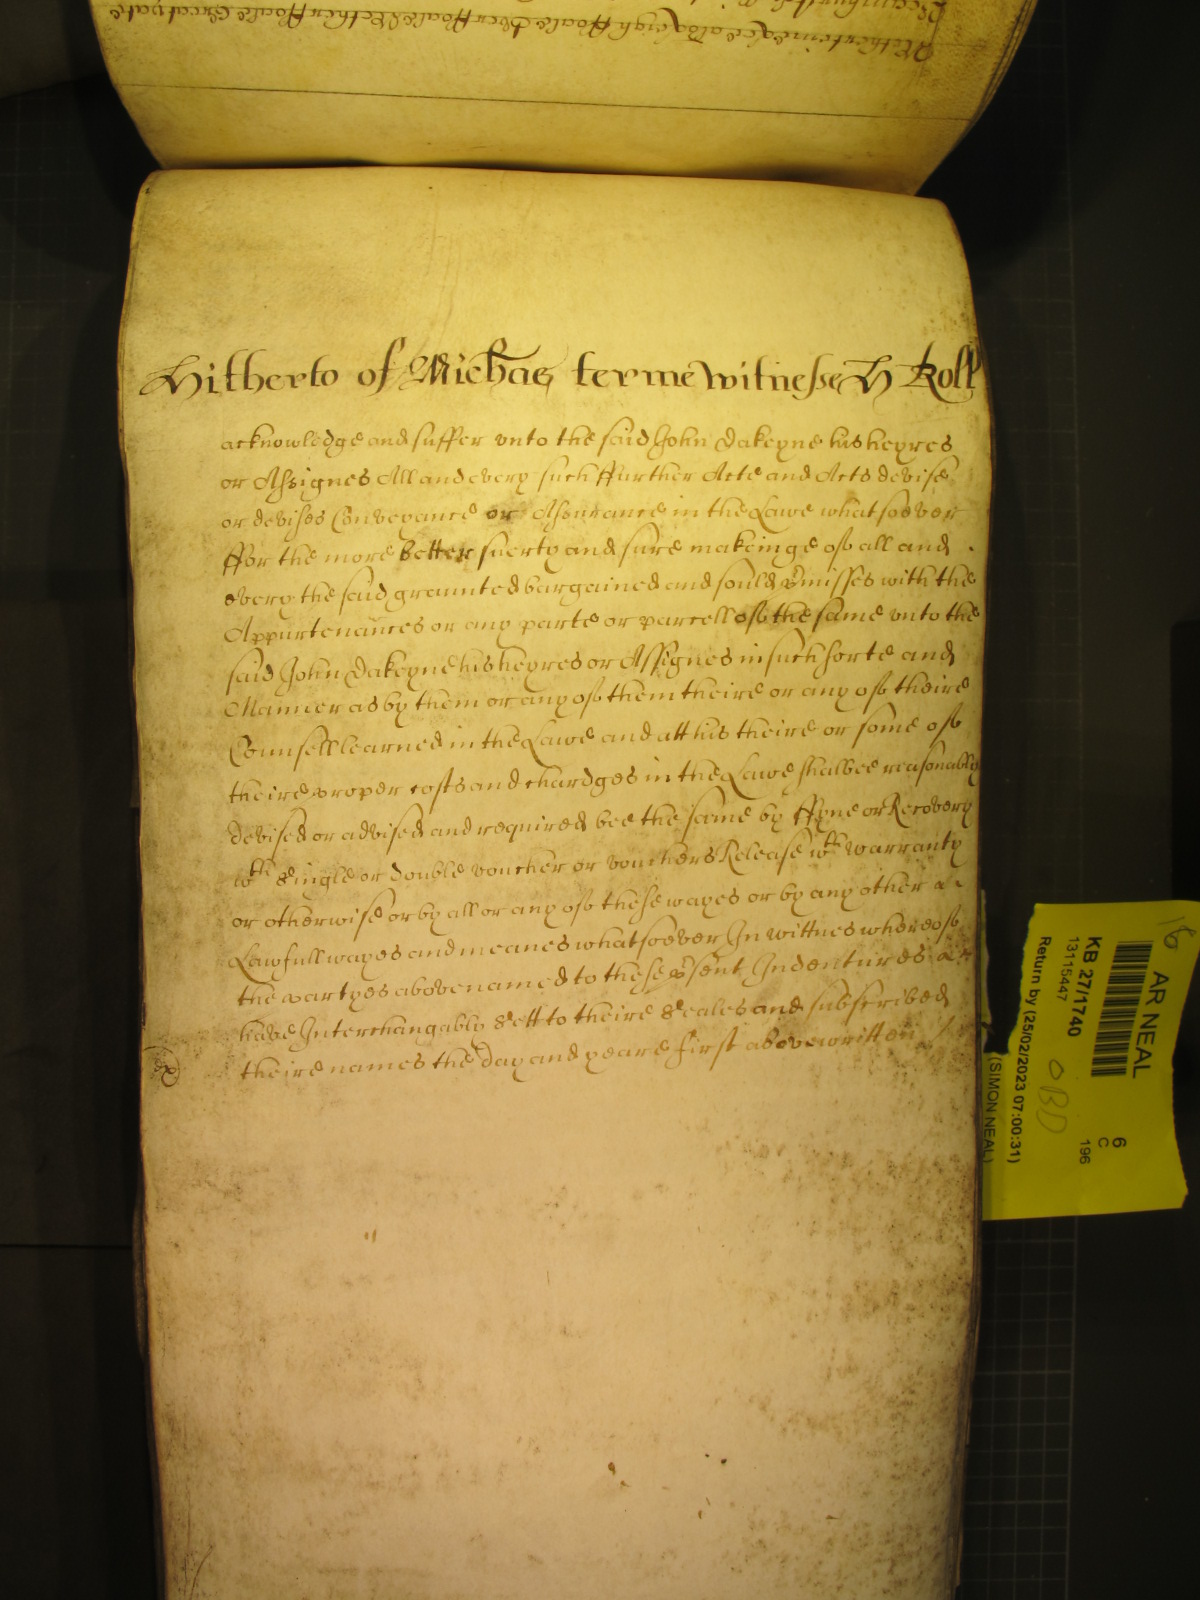 Hitherto of Michaes terme witnesseth Roll
acknowledge and suffer vnto the said John Dakeyne his heyres
or Assignes All and every such ffurther Acte and Acts devise
or devises Conveyance or Assurance in the Lawe whatsoever
ffor the more better suerty and sure makeinge of all and
every the said graunted bargained and sould p̃misses with the
Appurtenañces or any parte or parcell of the same vnto the
said John Dakeyne his heyres or Assignes in such sorte and
Manner as by them or any of them theire or any of theire
Counsell learned in the Lawe and att his theire or some of
theire proper costs and chardges in the Lawe shalbee reasonably
devised or advised and required bee the same by ffyne or Recovery
wth single or double voucher or vouchers Release wth warranty
or otherwise or by all or any of these wayes or by any other
Lawfull wayes and meanes whatsoever In wittnes whereof
the partyes abovenamed to these p̃sent Indentures
have Interchangably sett to theire Seales and subscribed
theire names the day and yeare first abovewritten /
AR NEAL
KB 27/1740
13115447
Return by (25/02/2023 07:00:31)
(SIMON NEAL)
6
C
196
OBD